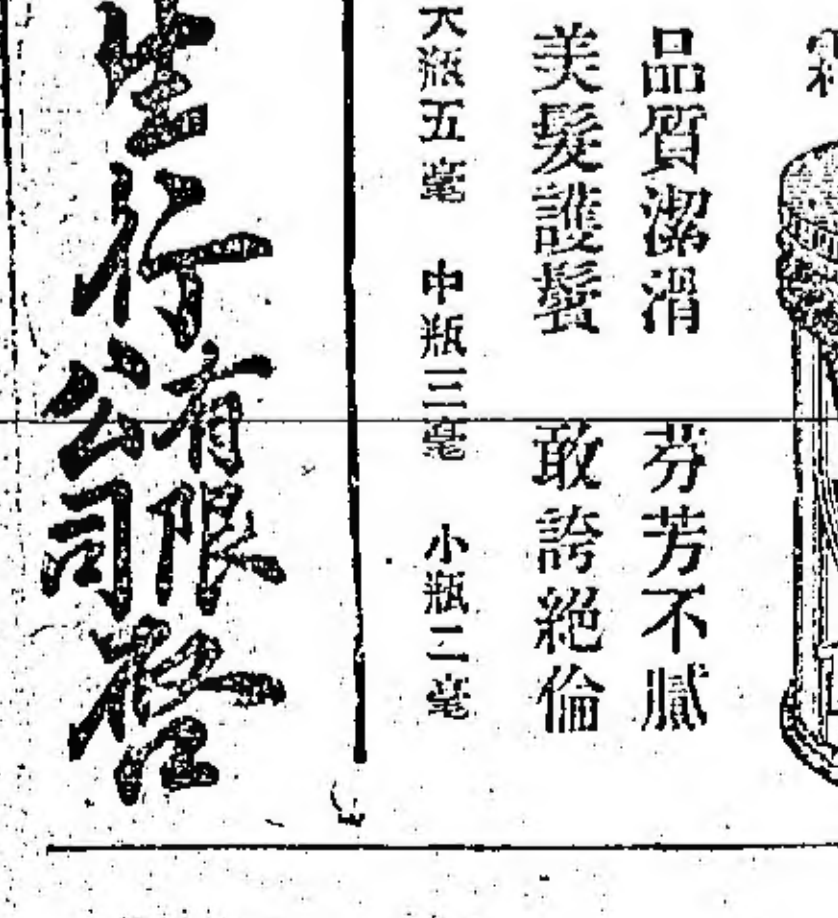 品質潔滑　芬芳不膩
美髮護鬢　敢誇絕倫
大瓶五毫　中瓶三毫　小瓶二毫
生行有限公司啓